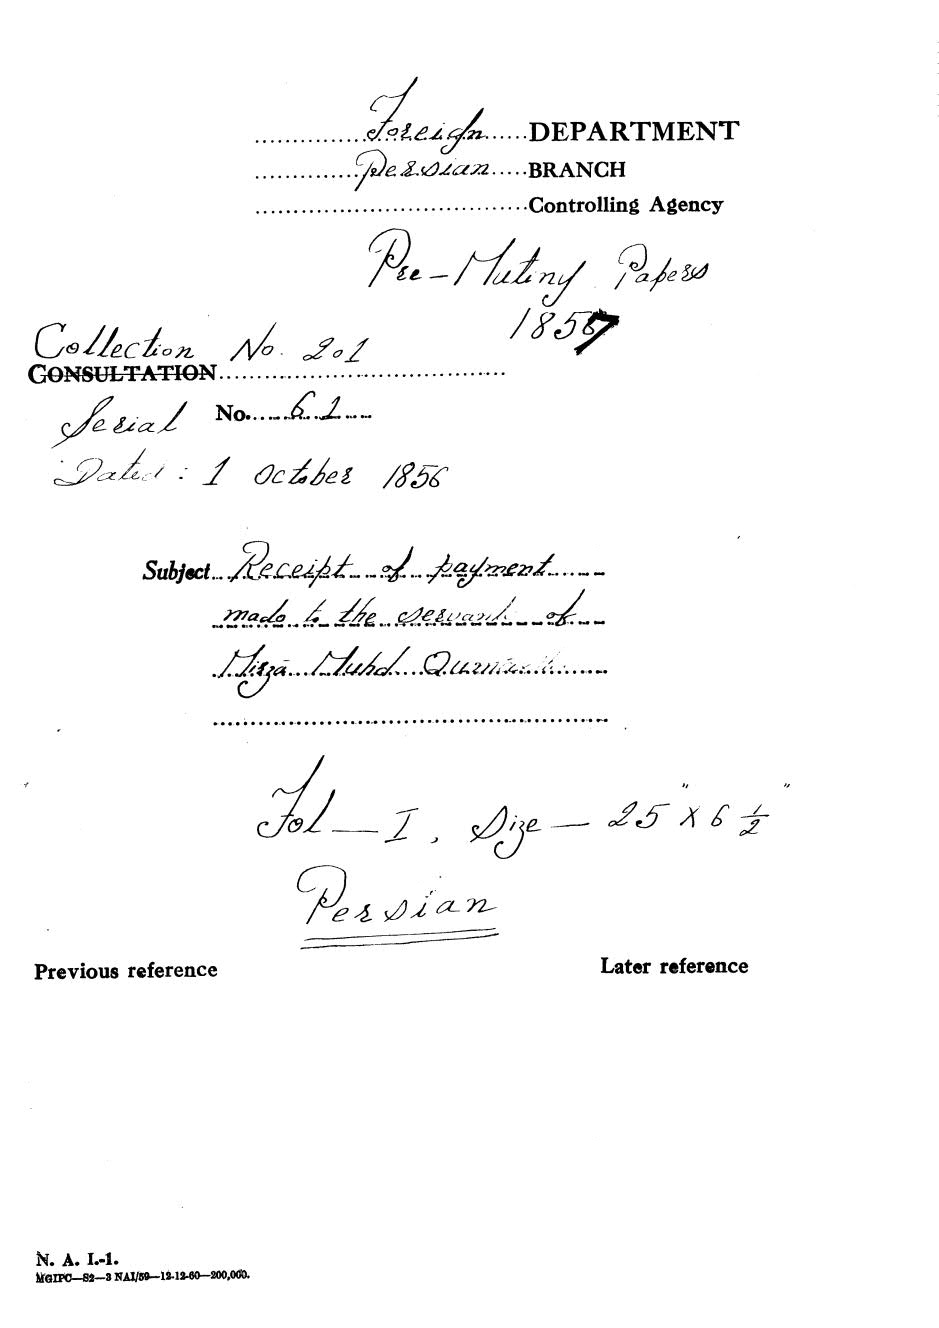 Foreign DEPARTMENT
Persian BRANCH
Controlling Agency
Pre-Mutiny Papers
1857
Collection No. 201
CONSULTATION
Serial No. 61
Dated: 1 October 1856
Subject Receipt of payment
made to the servants of
Mirza Muhd
Fol — I, Size — 25" X 6 1/2"
Persian
Previous reference
Later reference
N. A. I.-1.
MGIPC—S2—3 NAI/59—12-12-60—200,000.